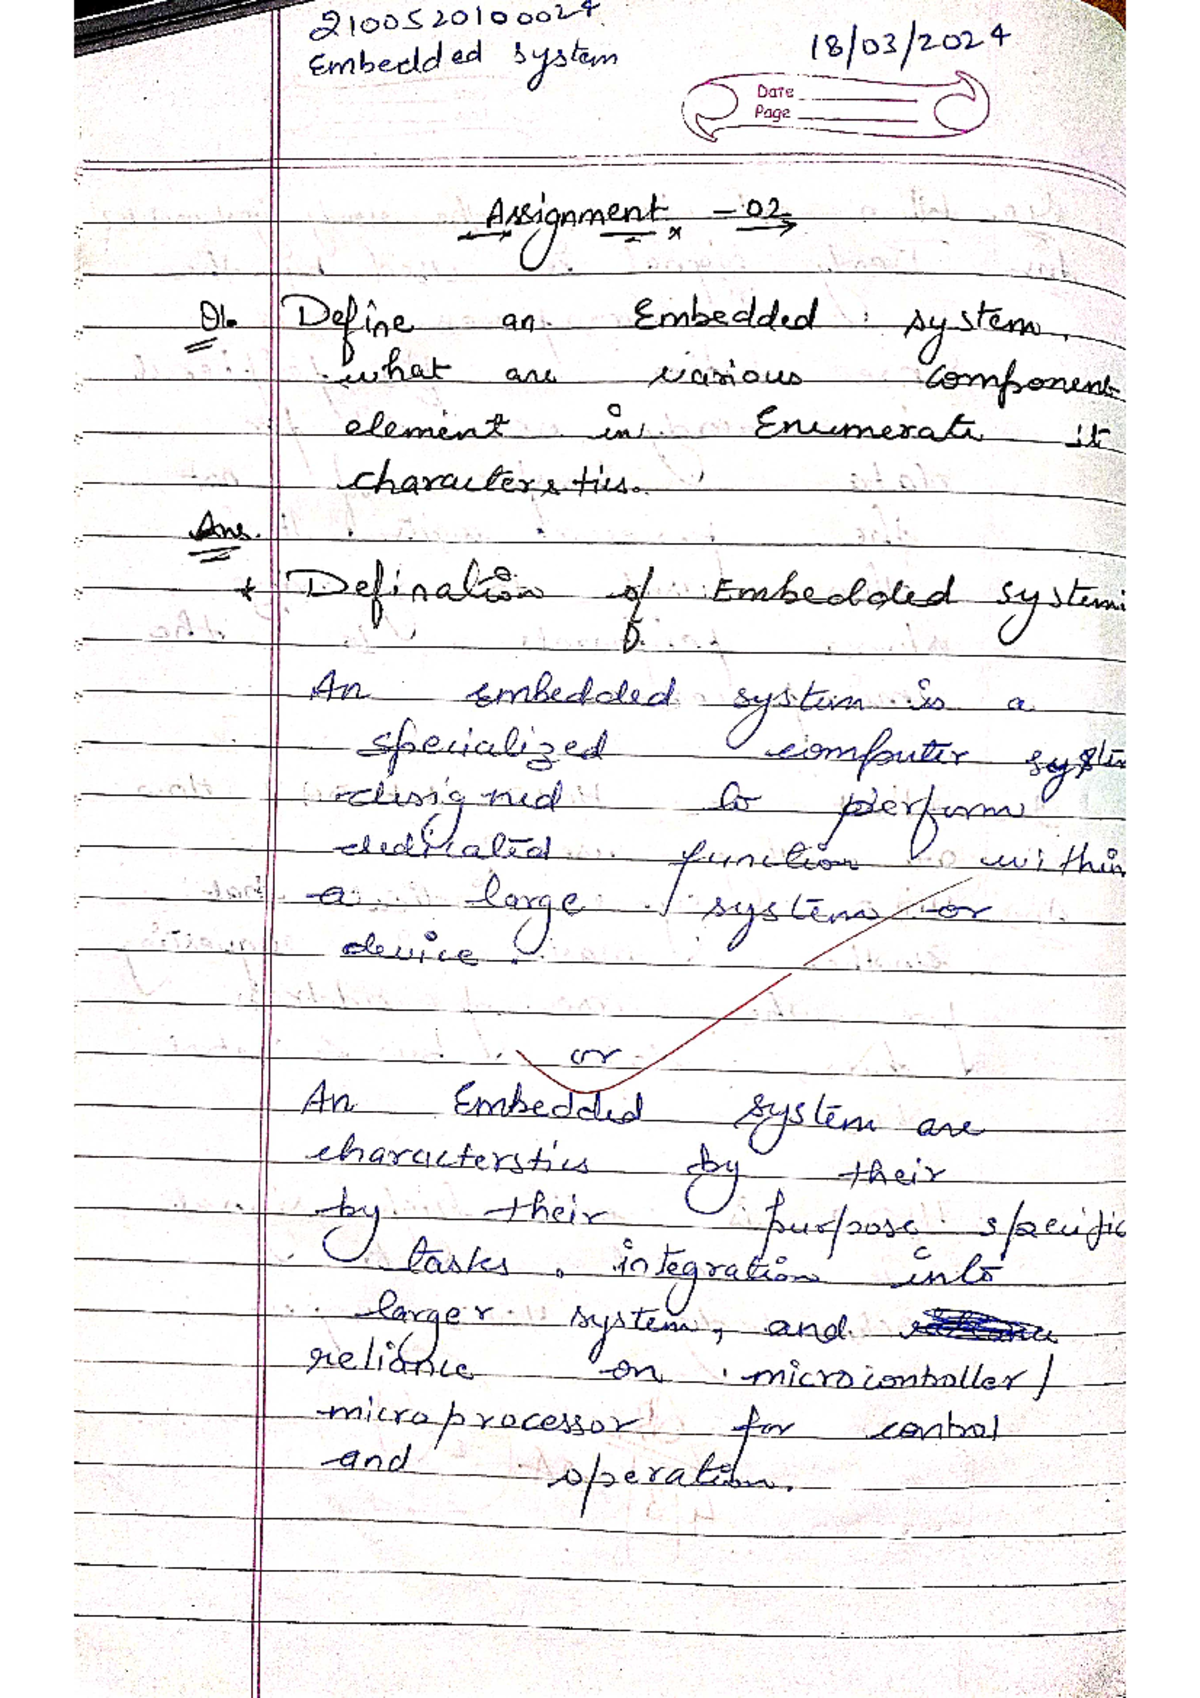 2100520100024
Embedded system
18/03/2024
Date
Page
Assignment - 02
Q1. Define an Embedded system.
what are various component
element in Enumerate it
characterstics.
Ans.
* Defination of Embedded system:
An embedded system is a
specialized computer system
designed to perform
dedicated function within
a large system or
device.
or
An Embedded system are
characterstics by their
by their purpose specific
tasks. integration into
larger system, and
reliance on microcontroller/
microprocessor for control
and operation.